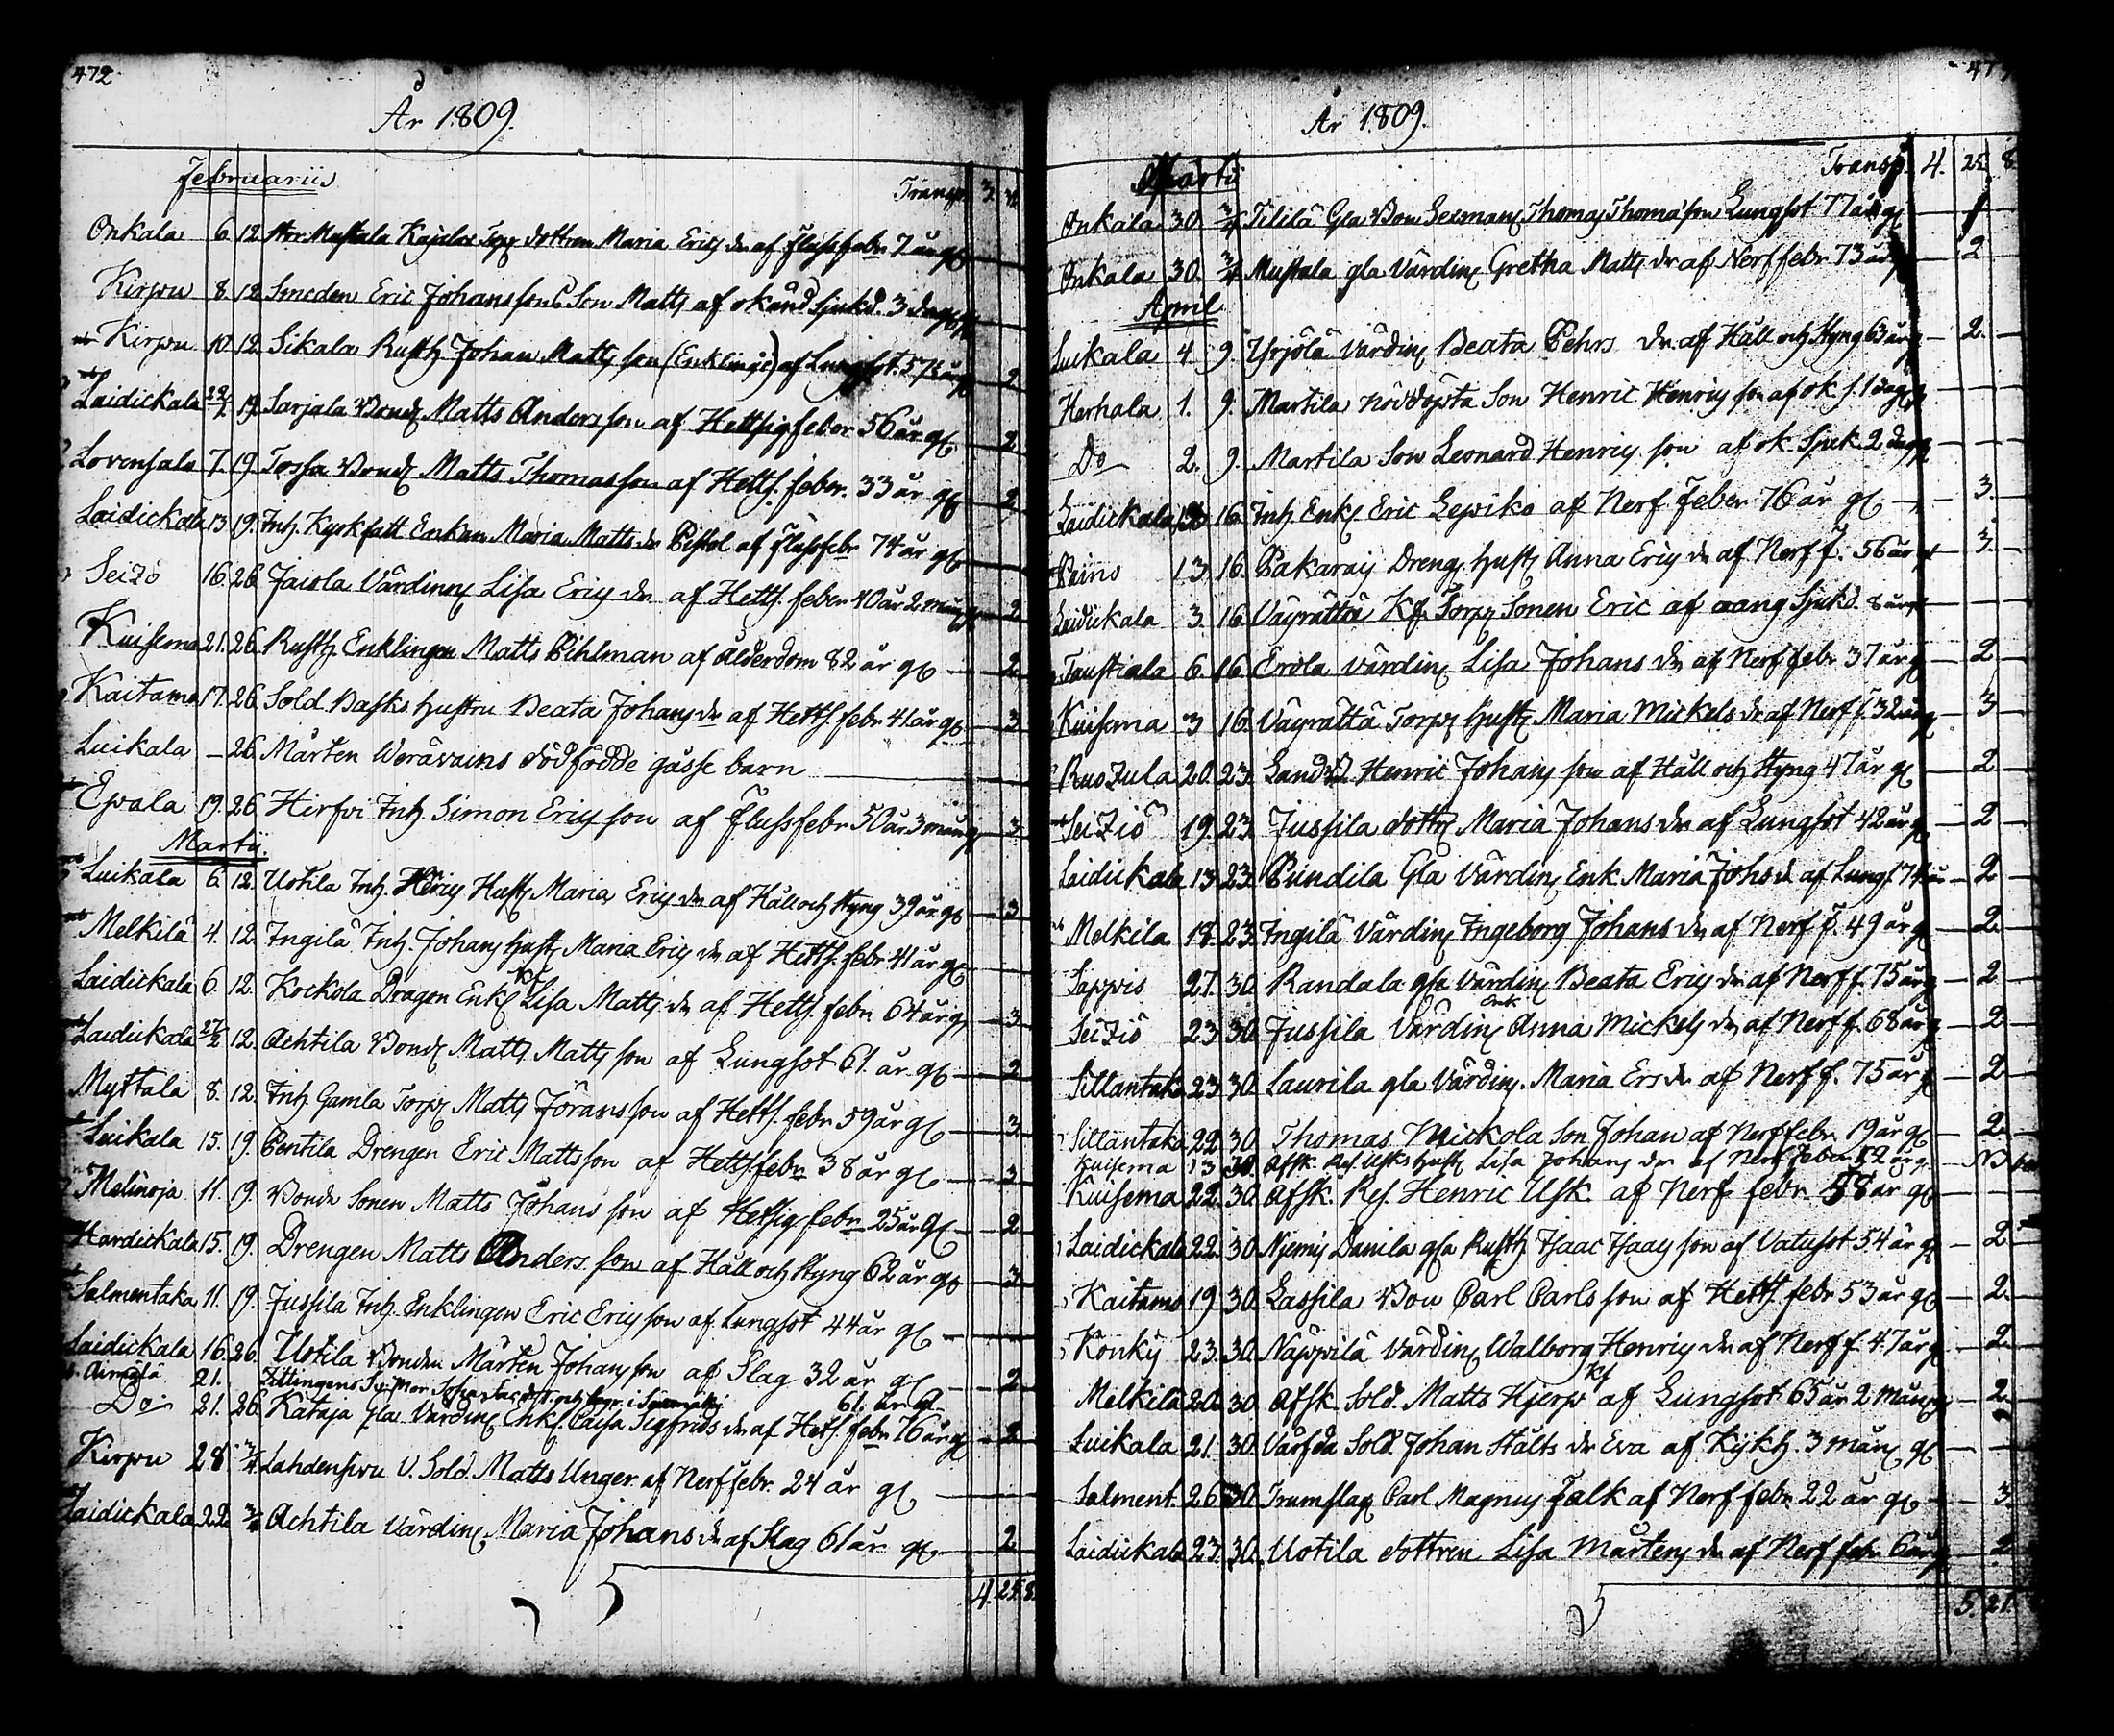 472
År 1809.
Februarius
Transp. 3.
Onkala 6. 12. Mustala Torp dottren Maria Erics dr af flussfebr 7 år gl
Kirpu 8. 12. Smeden Eric Johanssons Son Matts af okänd Sjukd. 3 dag gl
Kirpu 10. 12. Sikala Rusth Johan Matts son (Enkling) af Lungsot. 57 år gl 2
Laidickala 29/1 19. Sarjala Bond Matts Andersson af Hettsigfeber 56 år gl 2
Lovensala 7. 19. Tossa Bond Matts Thomasson af Hetts. feber. 33 år gl 2
Laidickala 13. 19. Inh. Kyrkfatt Enkan Maria Matts dr Pistol af flussfebr 74 år gl
Seiziö 16. 26. Jaiola Värdinn Lisa Erics dr af Hetts. feber 40 år 2 mån gl 2
Kuisema 21. 26. Rusth Enklingen Matts Pihlman af ålderdom 82 år gl 2
Kaitamo 17. 26. Sold. Basks hustru Beata Johans dr af Hetts. febr 41 år gl 3
Luikala – 26. Mårten Weräväins dödfödde gåsse barn
Epaala 19. 26. Hirfvi Inh. Simon Erics son af flussfebr 50 år 3 mån gl 3
Martii.
Luikala 6. 12. Uotila Inh. Henrics Hust Maria Erics dr af Håll och Styng 39 år gl 3
Melkilä 4. 12. Ingilä Inh. Johans hust Maria Erics dr af Hetts. febr 41 år gl
Laidickala 6. 12. Kockola Dragon Enk Lisa Matts dr af Hetts. febr. 64 år gl 3
Laidickala 27/2 12. Achtila Bond Matts Matts son af Lungsot 61. år gl 2
Myttälä 8. 12. Inh Gamla Torp Matts Jöransson af Hetts. febr. 59 år gl 3
Luikala 15. 19. Pentila Drengen Eric Mattsson af Hetts. febr 38 år gl 3
Melinoja 11. 19. Bonde Sonen Matts Johans son af Hetsig febr 25 år gl 2
Hardickala 15. 19. Drengen Matts Anders son af Håll och Styng 62 år gl 3
Salmentaka 11. 19. Jussila Inh. Enklingen Eric Erics son af Lungsot 44 år gl
Laidickala 16. 26. Uotila Bonden Mårten Johansson af Slag 32 år gl 2
21. 61. år gl
Do 21. 26. Kataja gla Värdin Enk. Caisa Sigfrids dr af Hets. febr 76 år gl 2
Kirpu 28. 3/4 Lahdensivu V. Sold. Matts Unger af Nerf febr. 24 år gl
Laidickala 22. 3/4 Achtila Värdin Maria Johans dr af Slag 61 år gl. 2
4. 25. 8.
År 1809.
Martii
Transp. 4. 25. 8
Onkala 30. 3/4 Tililä Gla Bon Herman Thomas Thomasson Lungsot 77 år gl
Onkala 30. 3/4 Mustala gla Värdin Gretha Matts dr af Nerf febr 73 år 2
April
Luikala 4 9. Yrjölä Värdin Beata Pehrs dr af Håll och Styng 63 år gl 2.
Herhala 1. 9. Martila nöddöpta Son Henric Henrics son af ok s. 1 dag gl
Do 2. 9. Martila Son Leonard Henrics son af ok Sjuk. 2 dag gl
Laidickala 16. Inh. Enk Eric Lepiko af Nerf Feber 76 år gl 3.
Paino 13. 16. Pakarais Dreng hust Anna Erics dr af Nerf f. 56 år gl 3.
Laidickala 3. 16. Väyrättä Kf. Torp Sonen Eric af aang Sjukd. 8 år gl
Taustiala 6. 16. Erola värdin Lisa Johans dr af Nerf febr 37 år gl 2
Kuisema 3 16. Väyrättä Torp Hust Maria Mickels dr af Nerf f. 32 år gl 3
Ruozula 20. 23. Landb. Henric Johans son af Håll och Styng 47 år gl 2
Seiziö 19. 23. Jussila dottr Maria Johans dr af Lungsot 42 år gl 2
Laidickala 13. 23. Pundila Gla Värdin Enk Maria Johs dr af Lungs. 74 år 2
Melkila 18. 23. Ingilä Värdin Ingeborg Johans dr af Nerf f. 49 år gl 2.
Sappis 27. 30. Randala gla Värdin Beata Erics dr af Nerf f. 75 år gl 2
Seiziö 23. 30. Jussila Värdin Enk Anna Mickels dr af Nerf f. 68 år gl 2
Sillantaka 23. 30. Laurila gla Värdin. Maria Ers dr af Nerf f. 75 år gl 2
Sillantaka 22. 30. Thomas Mickola Son Johan af Nerf febr. 19 år gl 2.
Kuisema 13 30. Afsk. Res. Usks hust Lisa Johans dr af Nerf feber 52 år gl
Kuisema 22. 30. Afsk. Res. Henric Usk. af Nerf febr. 58 år gl
Laidickala 22. 30. Njemis Danila gla Rusth Isaac Isaacs son af Vatusot 54 år gl 2
Kaitamo 19 30. Lassila Bon Carl Carls son af Hetts. febr 53 år gl 2.
Konky 23. 30. Näppilä Värdin Walborg Henrics dr af Nerf f. 47 år gl 2.
Melkilä 20. 30. Afsk Sold. Matts Hjerp af Lungsot 65 år 2 mån gl 2.
Luikala 21. 30. Värfda Sold. Johan Stålts dr Eva af Kykh. 3 mån gl
Salment. 26 30. Trumslag Carl Magnus Falk af Nerf febr. 22 år gl 3.
Laidickala 23. 30. Uotila dottren Lisa Mårtens dr af Nerf febr 6 år gl 2
5. 21.